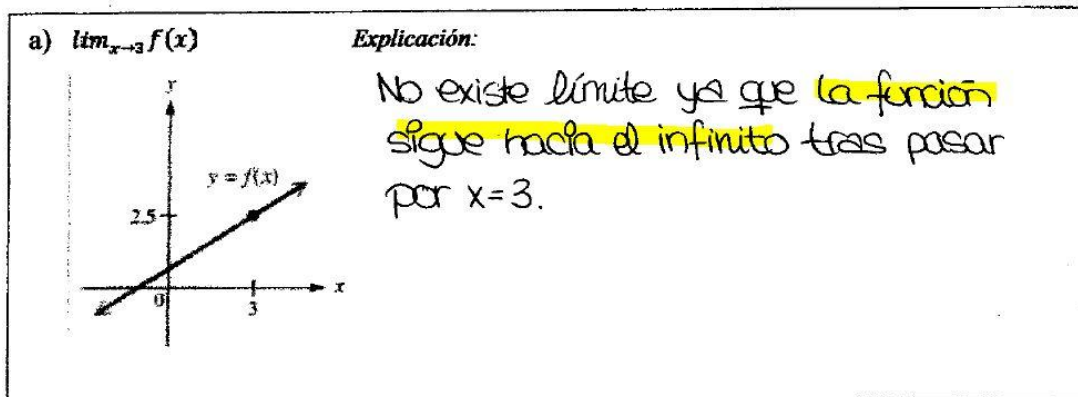 a) lim_{x→3} f(x)
Explicación:
No existe límite ya que la función
sigue hacia el infinito tras pasar
por x=3.
y
y = f(x)
2.5
x
0
3